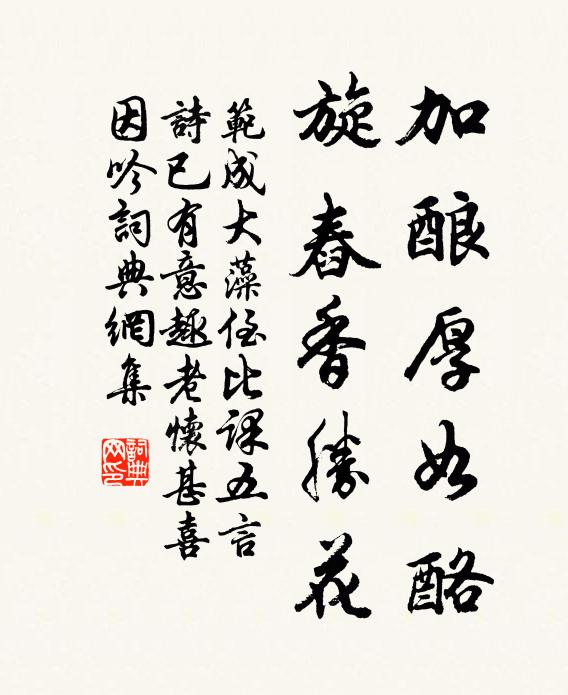 加酿厚如酪
旋舂香勝花
範成大藻侄比課五言
詩已有意趣老懷甚喜
因吟詞典網集
詞典網印